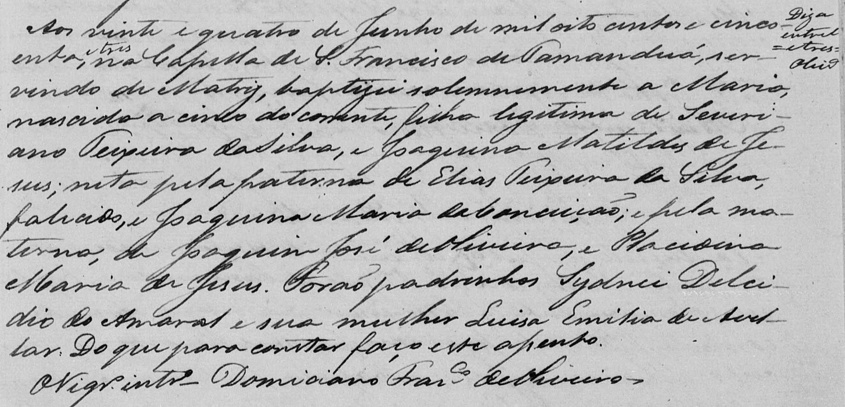 Aos vinte e quatro de Junho de mil oito centos e cinco-
enta, e tres na Capella de S. Francisco de Tamanduá, ser-
vindo de Matriz, baptizei solemnemente a Maria,
nascida a cinco do corrente, filha legitima de Severi-
ano Teixeira da Silva, e Joaquina Matildes de Je-
sus; neta pela paterna de Elias Teixeira da Silva,
falicido, e Joaquina Maria da Conceição; e pela ma-
terna, de Joaquim José de Oliveira, e Placidina
Maria de Jesus. Forão padrinhos Sydnei Delci-
dio do Amaral e sua mulher Luisa Emilia de Avel-
lar. Do que para constar faço este apento.
O Vigr.º intr.º Domiciano Fran.co de Oliveira
Diga
entrel
=e tres=
Olivr.ª